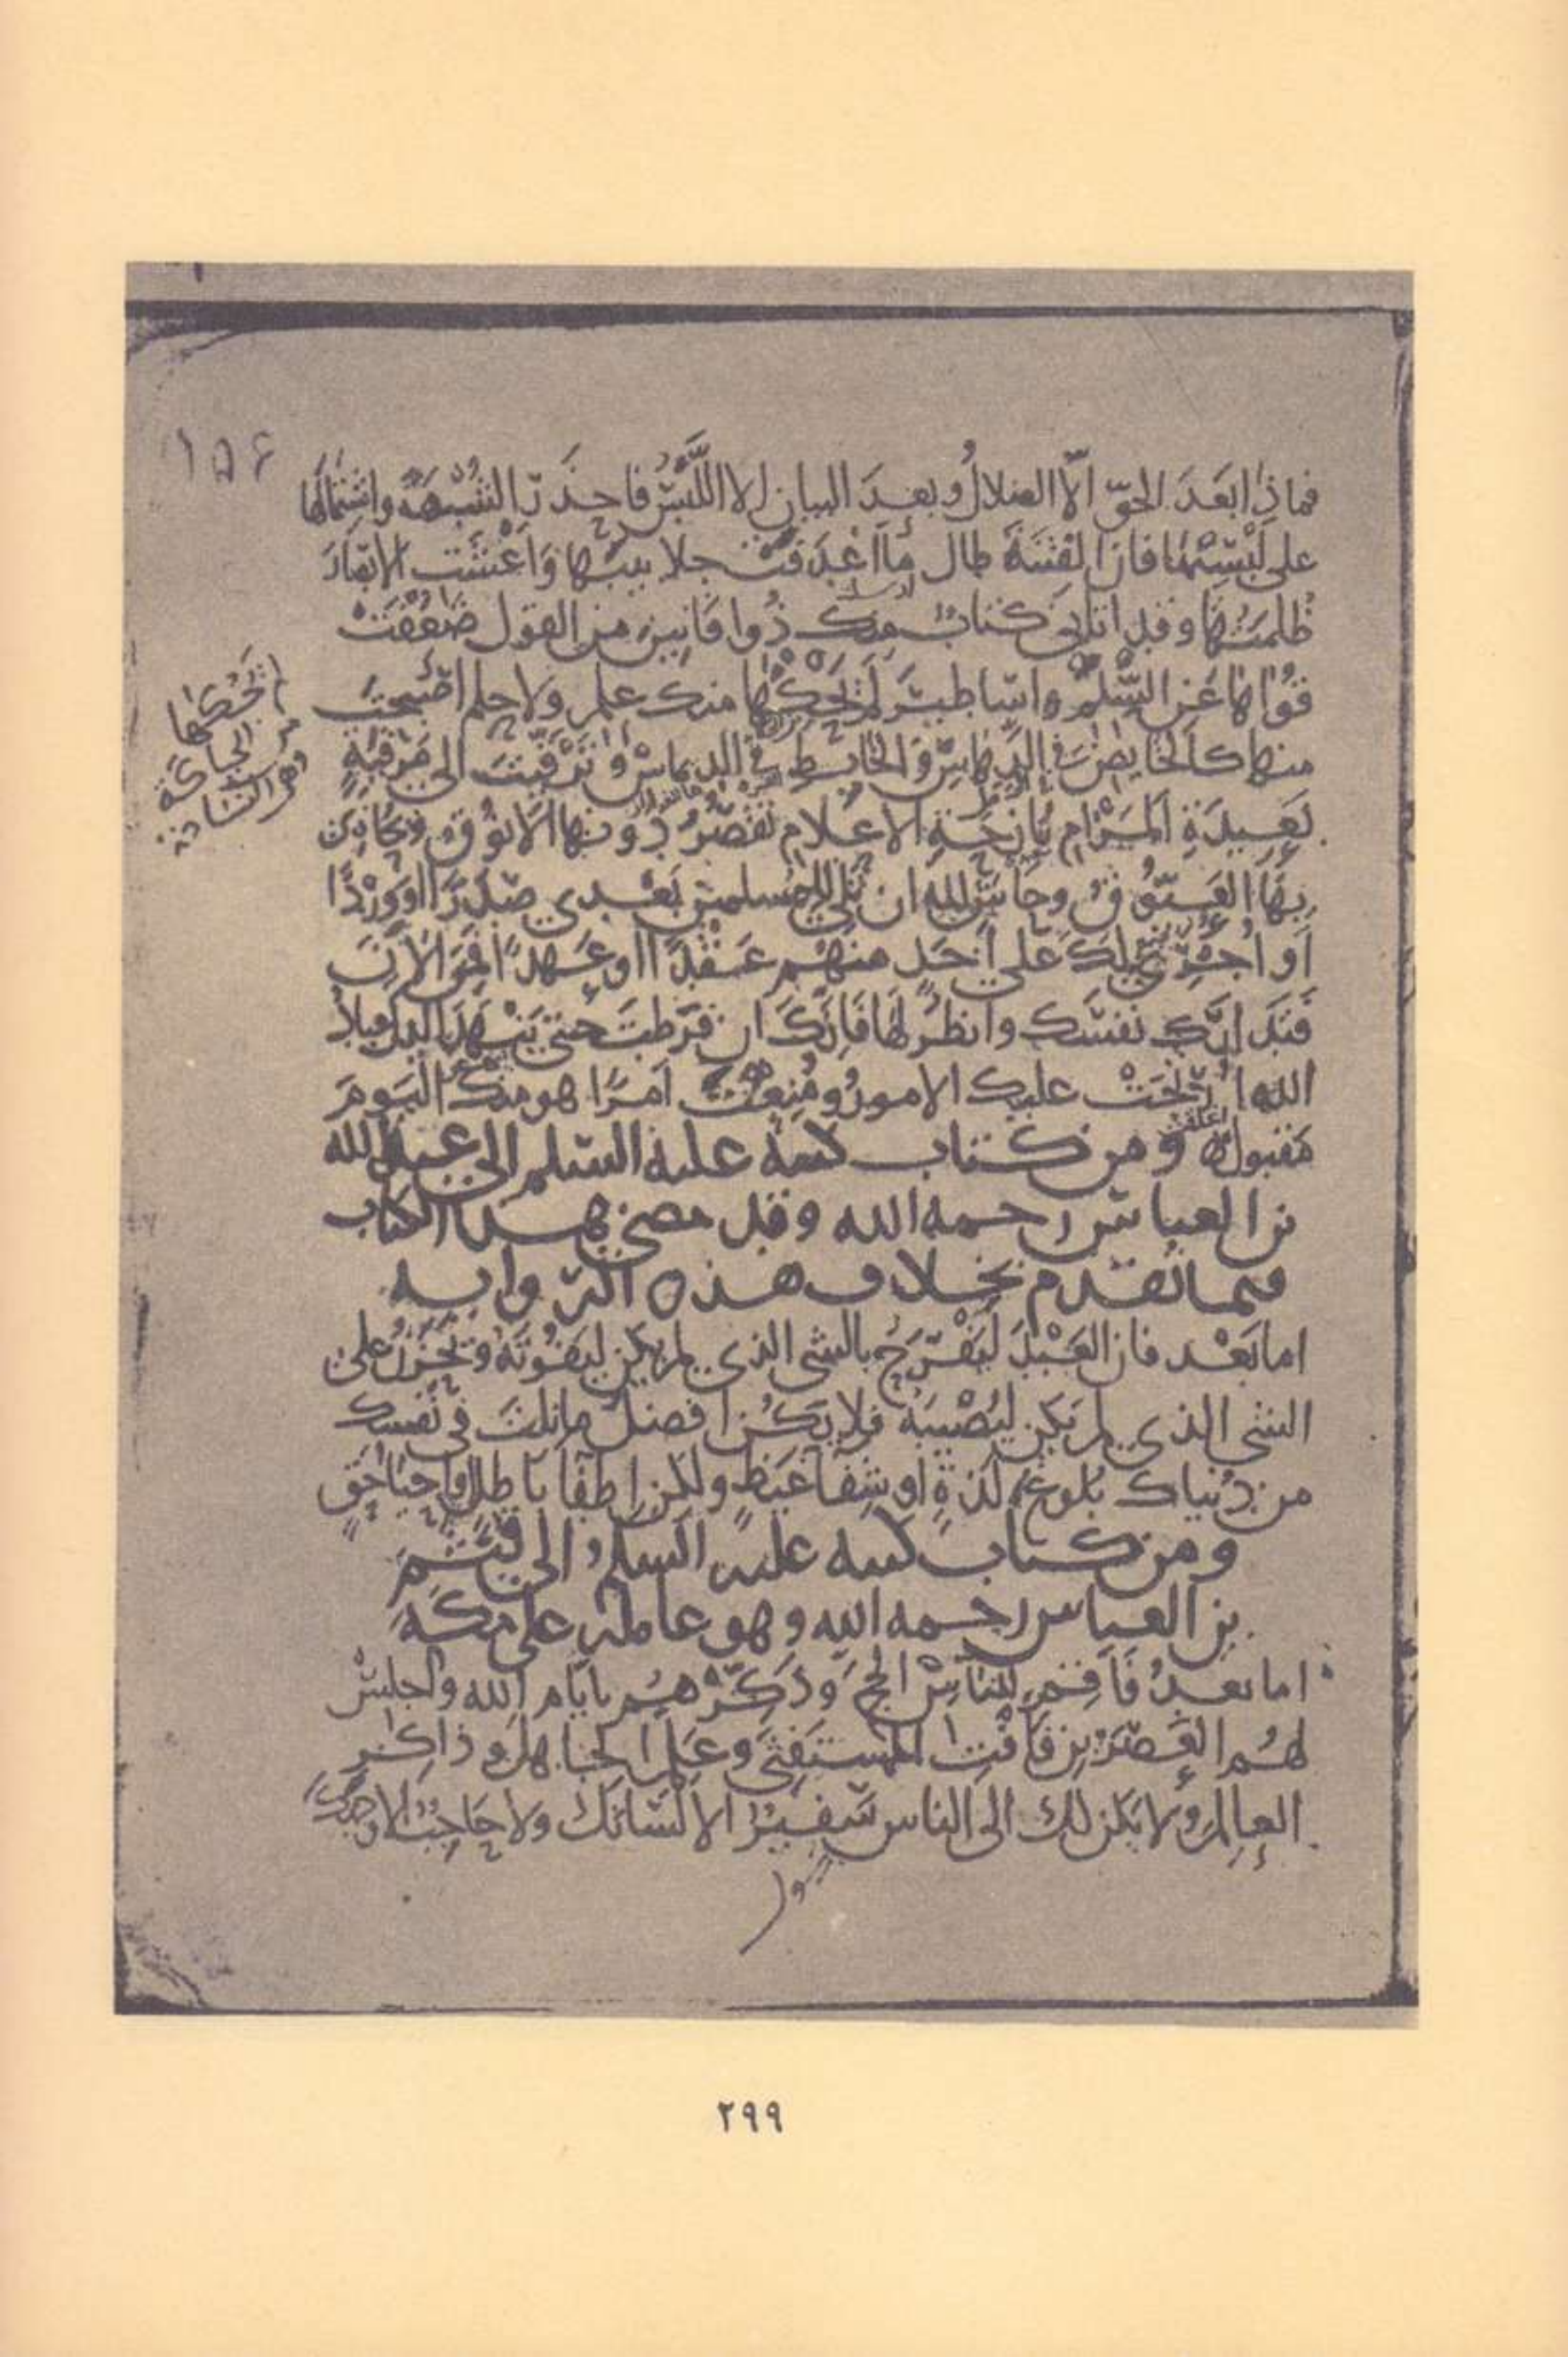 ١٥٤
فماذا بَعدَ الحقّ الّا الضلالُ وبعدَ البيانِ الا اللَّبْسُ فاحذرِ الشُّبْهَةَ واشتمالَها
على لُبْسَتِها فان الفتنَةَ طال ما اَغْدَفَتْ جلابيبَها وَاَعْشَت الابصَارَ
ظُلمتُها وقد اتاني كتابٌ منك ذُو افَانِينَ من القول ضَعُفَتْ
قُواها عَنِ السِّلْمِ واسَاطيرَ لم يَحُكْها منك علم ولا حلم اصبحتَ
منها كالخايِضِ في الدَّهاسِ وَالخابِطِ في الديماسْ وتَرقّيتَ الى مَرْقَبَةٍ
بَعيدَةِ المَرَامِ نَازِحَةِ الاعلام تقصُرُ دونها الانُوقُ ويُحاذى
بِهَا العَيّوقُ وحَاشَ لله ان تلي للمسلمين بَعْدي صَدَرًا او وِرْدًا
اَو اُجْرِيَ لكَ على اَحَدٍ منهُم عَقْدًا او عَهدًا فمِنَ الاٰنَ
فتَدَاركْ نفسَك وانظُرْ لها فَاِنّكَ ان فرّطتَ حتى يَنْهَدَ اليك عبادُ
الله اُرتِجَتْ عليك الامورُ ومُنِعْتَ اَمرًا هو منك اليومَ
مَقبولٌ ومن كتاب كتبه عليه السلم الى عبد الله
بن العباس رحمه الله وقد مضى هذا الكتاب
فيما تقدم بخلاف هذه الرواية
اما بَعْد فان العَبْدَ ليَفْرَحُ بالشي الذي لم يكن ليَفُوتَهُ ويَحزَنُ على
الشي الذي لم يَكن ليُصيبَهُ فلا يَكُن افضلُ ما نلتَ في نفسك
من دُنياك بُلوغَ لَذةٍ او شِفآ غيَظٍ ولكن اِطفآ باطل واِحيآ حقٍ
ومن كتاب كتبه عليه السلم الى قُثَمَ
بن العباس رحمه الله وهو عامله على مكة
اما بعدُ فَاَقِم للناسِ الحجَ وَذكِّرْهُم بايّام الله واجلِسْ
لهُم العَصْرَينِ فَاَفْتِ المستَفتيَ وعَلِّم الجاهلَ وذاكِرِ
العالِمَ ولا يكن لك الى الناس سَفيرٌ الا لسَانكَ ولا حَاجِبٌ الا وجهك
٢٩٩